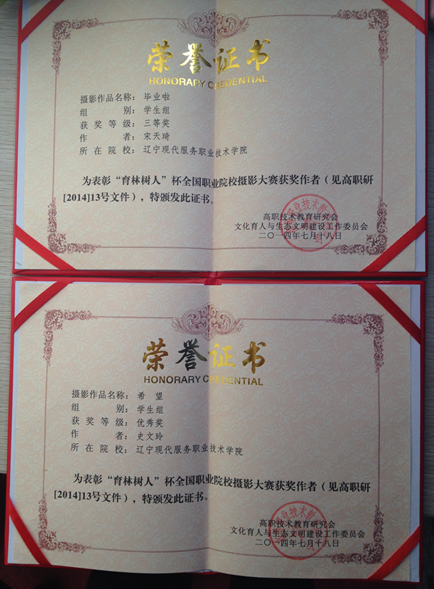 荣誉证书
HONORARY CREDENTIAL
摄影作品名称：毕业啦
组 别：学生组
获奖等级：三等奖
作 者：宋天琦
所在院校：辽宁现代服务职业技术学院
为表彰“育林树人”杯全国职业院校摄影大赛获奖作者（见高职研
[2014]13号文件），特颁发此证书。
高职技术教育研究会
文化育人与生态文明建设工作委员会
二〇一四年七月十八日
荣誉证书
HONORARY CREDENTIAL
摄影作品名称：希望
组 别：学生组
获奖等级：优秀奖
作 者：史文玲
所在院校：辽宁现代服务职业技术学院
为表彰“育林树人”杯全国职业院校摄影大赛获奖作者（见高职研
[2014]13号文件），特颁发此证书。
高职技术教育研究会
文化育人与生态文明建设工作委员会
二〇一四年七月十八日